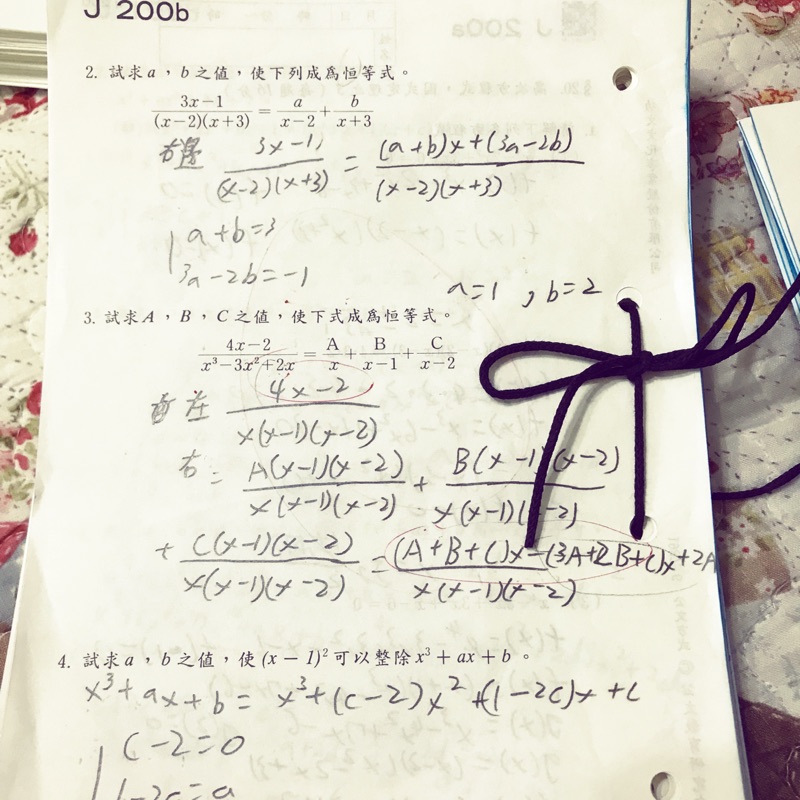 J 200b
2. 試求 a，b 之值，使下列成為恒等式。
(3x−1)/((x−2)(x+3)) = a/(x−2) + b/(x+3)
右邊 (3x−1)/((x−2)(x+3)) = ((a+b)x+(3a−2b))/((x−2)(x+3))
a+b=3
3a−2b=−1
a=1 , b=2
3. 試求 A，B，C 之值，使下式成為恒等式。
(4x−2)/(x³−3x²+2x) = A/x + B/(x−1) + C/(x−2)
左 (4x−2)/(x(x−1)(x−2))
右 = A(x−1)(x−2)/(x(x−1)(x−2)) + B(x−1)(x−2)/(x(x−1)(x−2))
+ C(x−1)(x−2)/(x(x−1)(x−2)) = ((A+B+C)x−(3A+2B+C)x+2A)/(x(x−1)(x−2))
4. 試求 a，b 之值，使 (x−1)² 可以整除 x³+ax+b。
x³+ax+b = x³+(c−2)x²+(1−2c)x+c
c−2=0
1−2c=a